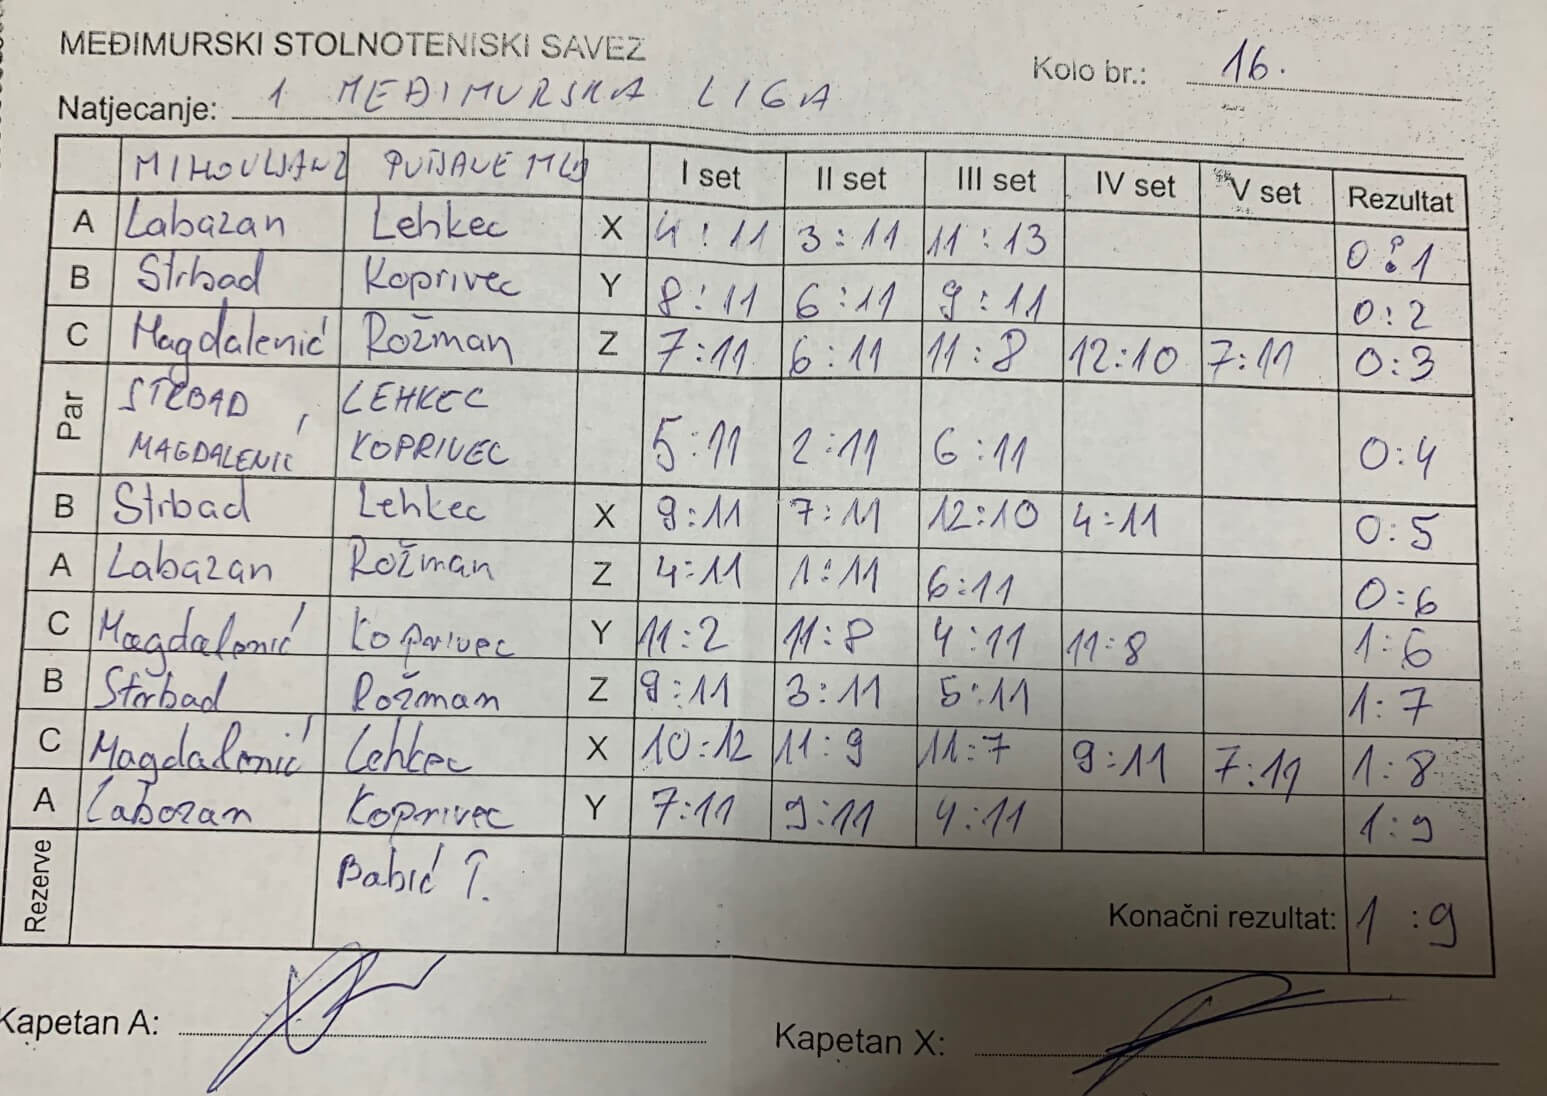 MEĐIMURSKI STOLNOTENISKI SAVEZ
Kolo br.: 16.
Natjecanje: 1 MEĐIMURSKA LIGA
MIHOVLJAN 2 I set II set III set IV set V set Rezultat
A Labazan Lehkec X 4:11 3:11 11:13 0:1
B Strbad Koprivec Y 8:11 6:11 9:11 0:2
C Magdalenić Rožman Z 7:11 6:11 11:8 12:10 7:11 0:3
Par STRBAD, LEHKEC
MAGDALENIĆ KOPRIVEC 5:11 2:11 6:11 0:4
B Strbad Lehkec X 9:11 7:11 12:10 4:11 0:5
A Labazan Rožman Z 4:11 1:11 6:11 0:6
C Magdalenić Koprivec Y 11:2 11:8 4:11 11:8 1:6
B Strbad Rožman Z 9:11 3:11 5:11 1:7
C Magdalenić Lehkec X 10:12 11:9 11:7 9:11 7:11 1:8
A Labazan Koprivec Y 7:11 9:11 4:11 1:9
Rezerve Babić T.
Konačni rezultat: 1:9
Kapetan A:
Kapetan X: